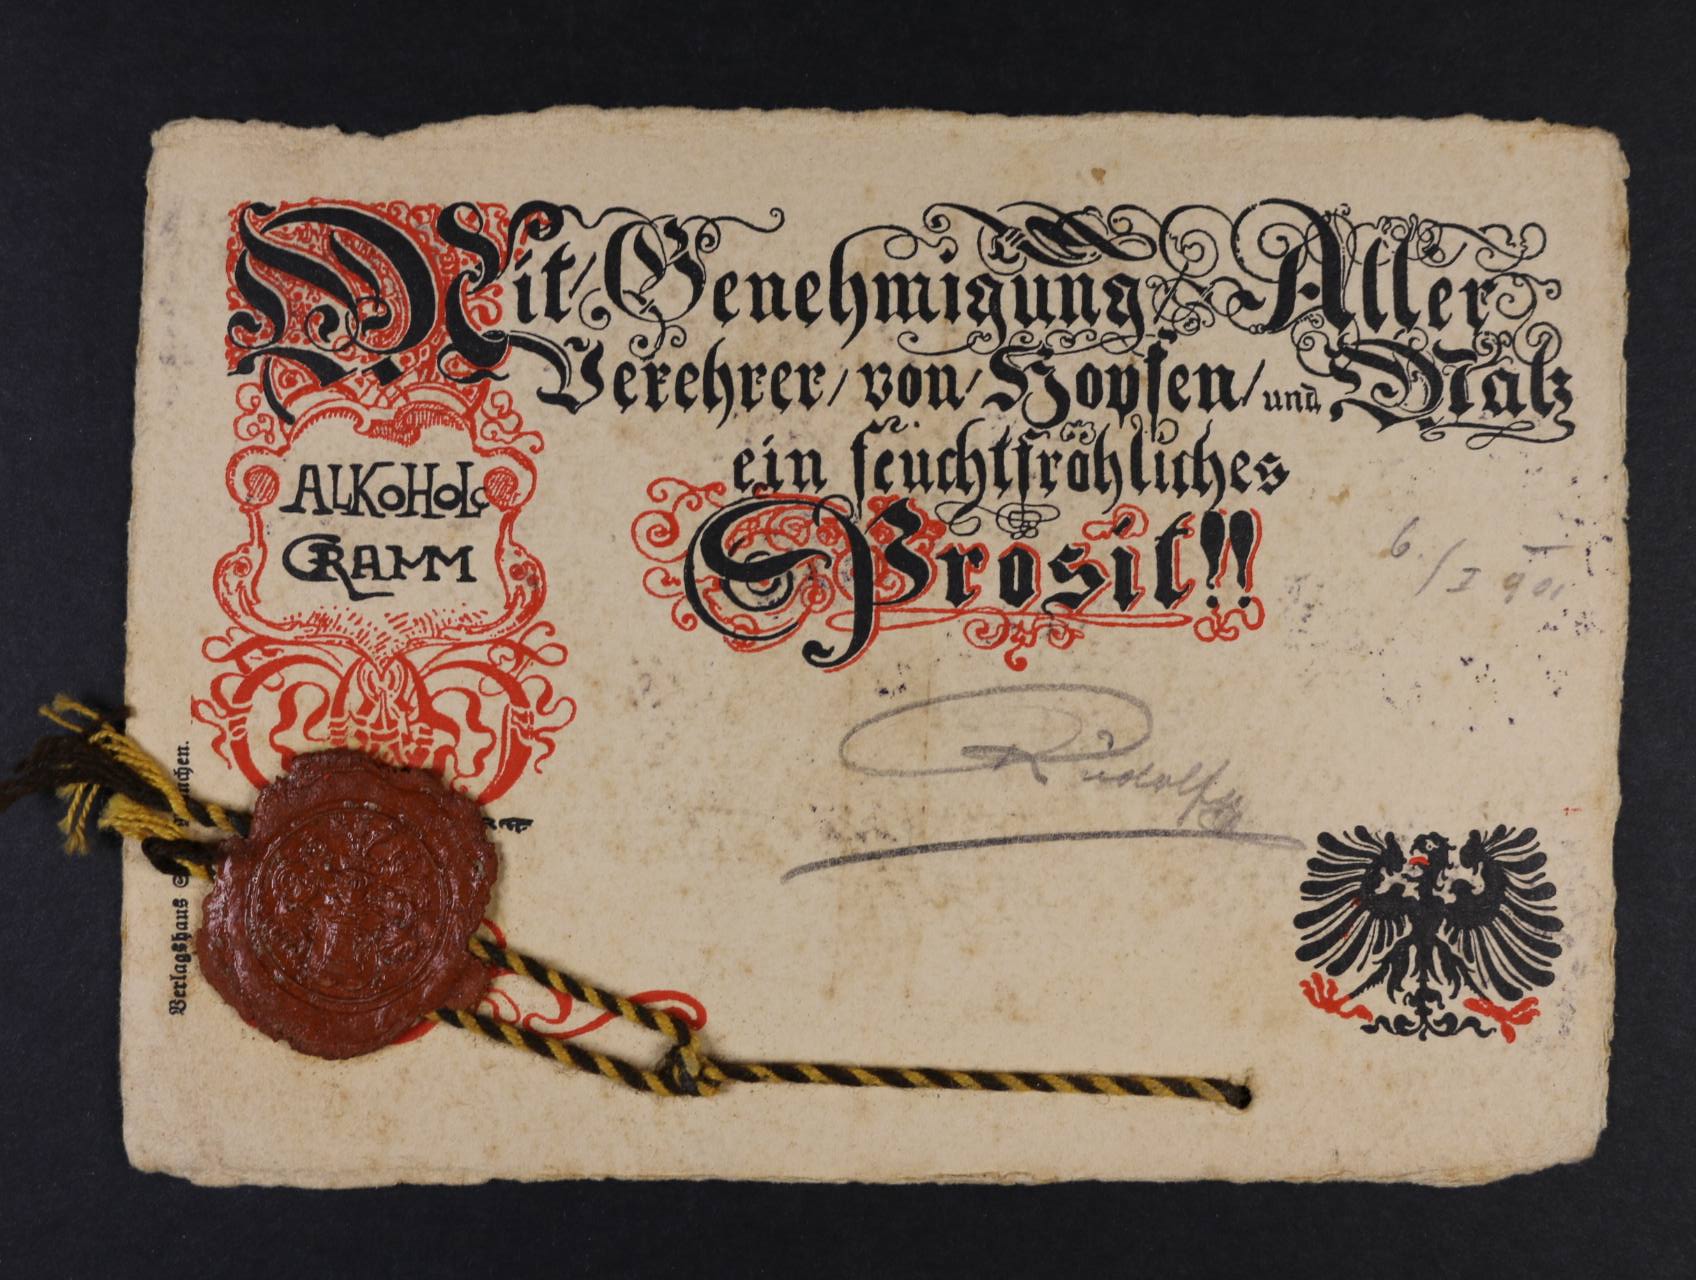 Mit Genehmigung Aller
Verehrer von Hopfen und Malz
ein feuchtfröhliches
Prosit!!
ALKOHOLO
GRAMM
6./I 901
Rudolf
Verlagshaus
München.